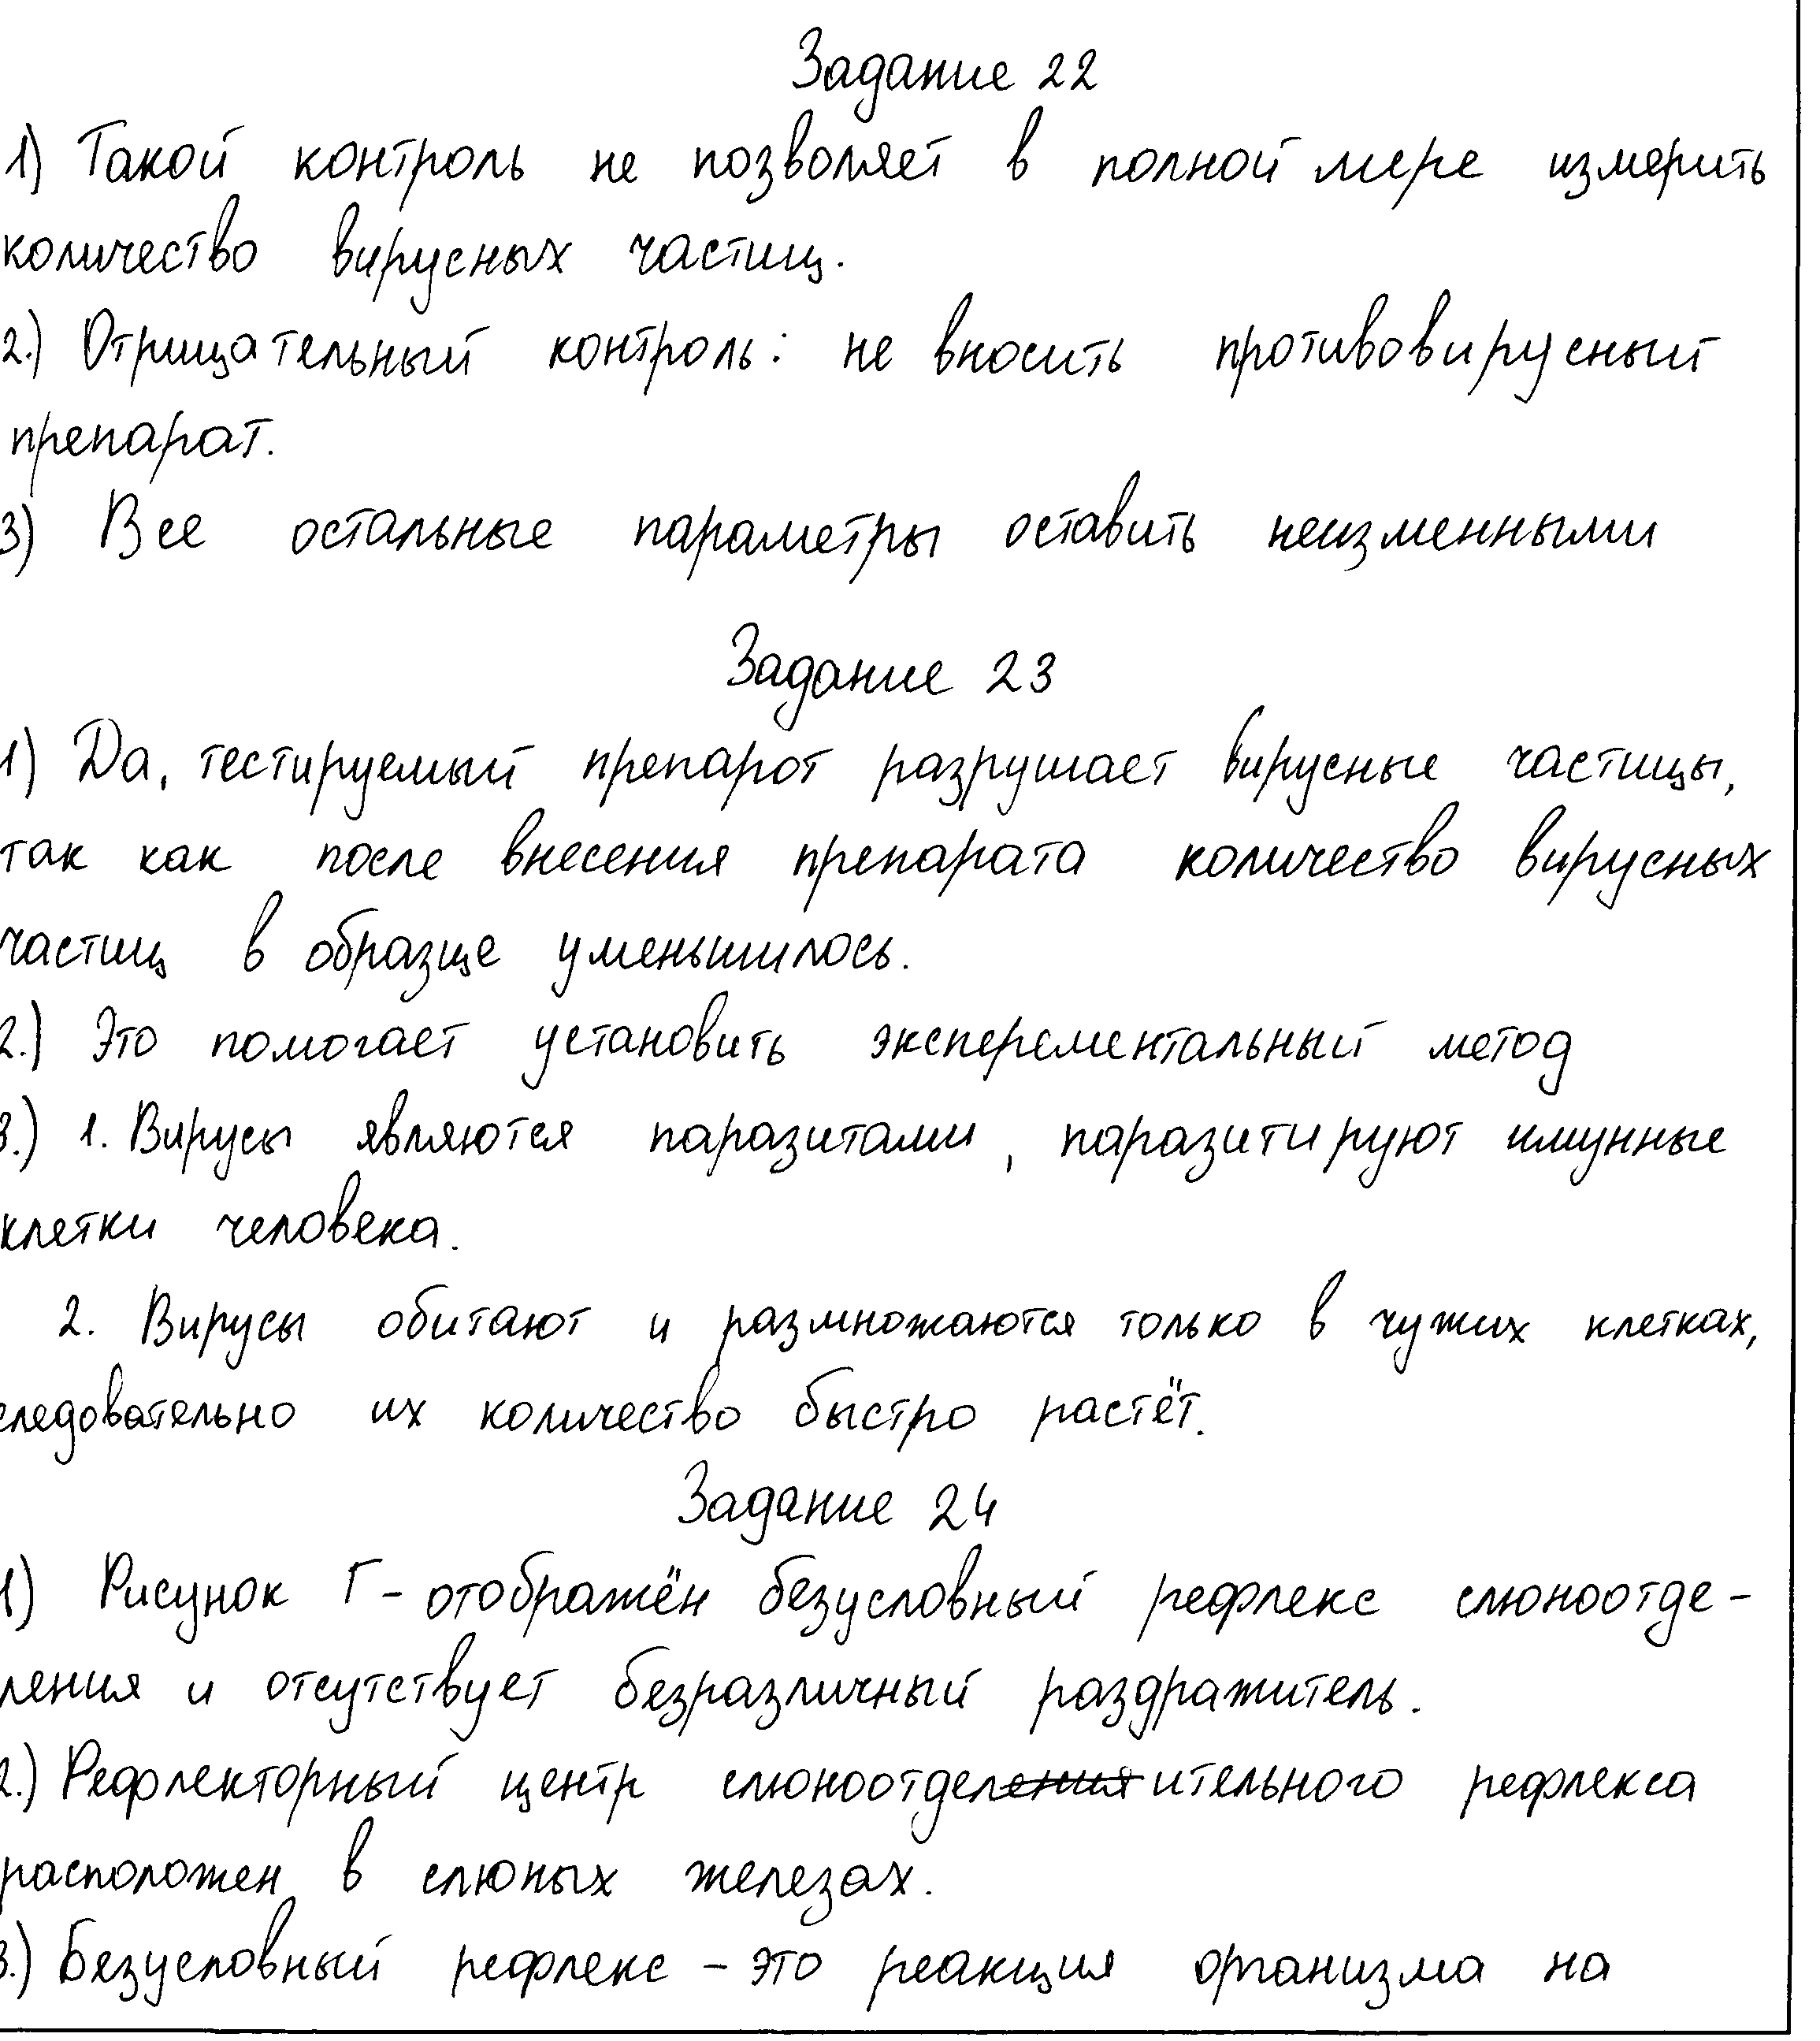 Задание 22
1) Такой контроль не позволяет в полной мере измерить
количество вирусных частиц.
2.) Отрицательный контроль: не вносить противовирусный
препарат.
3) Все остальные параметры оставить неизменными
Задание 23
1) Да, тестируемый препарот разрушает вирусные частицы,
так как после внесения препарата количество вирусных
частиц в образце уменьшилось.
2.) Это помогает установить эксперементальный метод
3.) 1. Вирусы являются паразитами, паразитируют имунные
клетки человека.
2. Вирусы обитают и размножаются только в чужих клетках,
следовательно их количество быстро растёт.
Задание 24
1) Рисунок Г - отображён безусловный рефлекс слюноотде-
ления и отсутствует безразличный раздражитель.
2.) Рефлекторный центр слюноотделительного рефлекса
расположен в слюных железах.
3.) Безусловный рефлекс - это реакция организма на